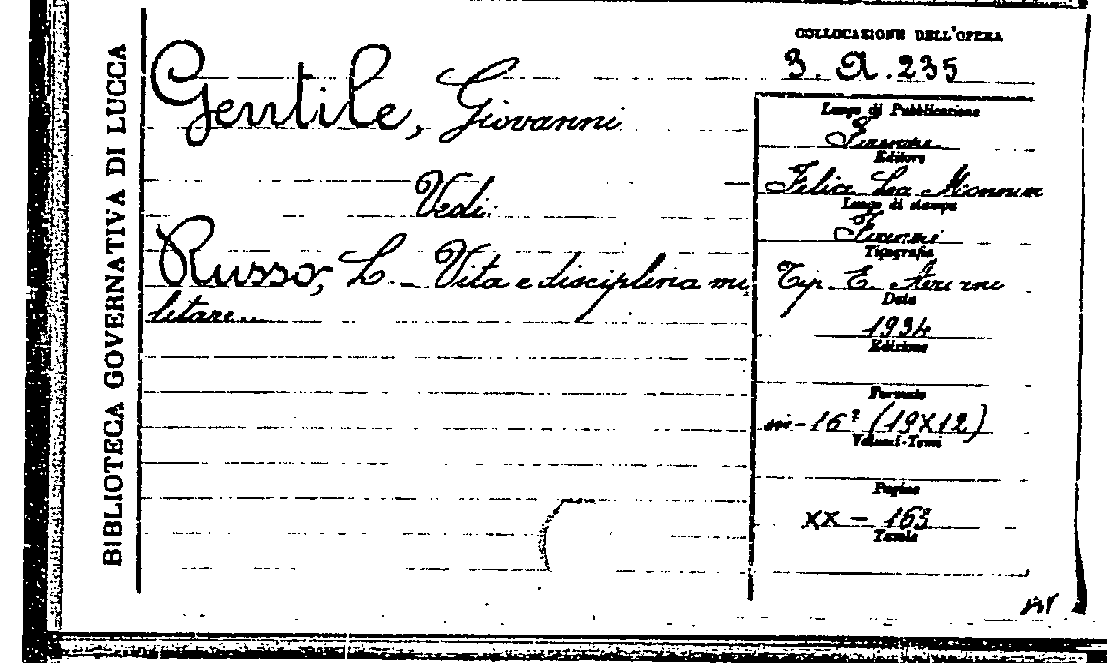 BIBLIOTECA GOVERNATIVA DI LUCCA
Gentile, Giovanni
Vedi:
Russo, L. - Vita e disciplina mi
litare...
COLLOCAZIONE DELL'OPERA
3. A. 235
Luogo di Pubblicazione
Firenze
Editore
Felice Le Monnier
Luogo di stampa
Firenze
Tipografia
Tip. E.
Data
1934
Edizione
Formato
in-16° (19X12)
Volumi-Tomi
Pagine
XX - 163
Tavole